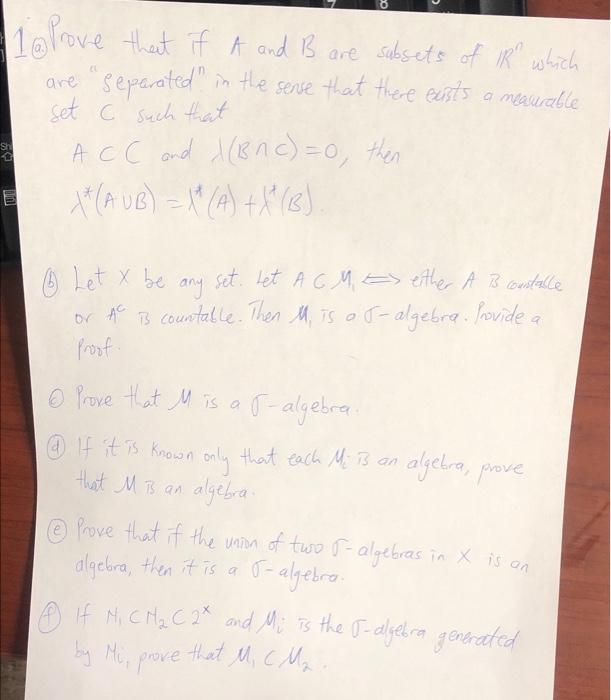 1. (a) Prove that if A and B are subsets of ℝⁿ which
are "separated" in the sense that there exists a measurable
set C such that
A ⊂ C and λ(B∩C)=0, then
λ*(A∪B) = λ*(A) + λ*(B).
(b) Let X be any set. Let A ⊂ M₁ ⟺ either A is countable
or Aᶜ is countable. Then M₁ is a σ-algebra. Provide a
proof.
(c) Prove that M is a σ-algebra.
(d) If it is known only that each Mᵢ is an algebra, prove
that M is an algebra.
(e) Prove that if the union of two σ-algebras in X is an
algebra, then it is a σ-algebra.
(f) If N₁ ⊂ N₂ ⊂ 2ˣ and Mᵢ is the σ-algebra generated
by Nᵢ, prove that M₁ ⊂ M₂.